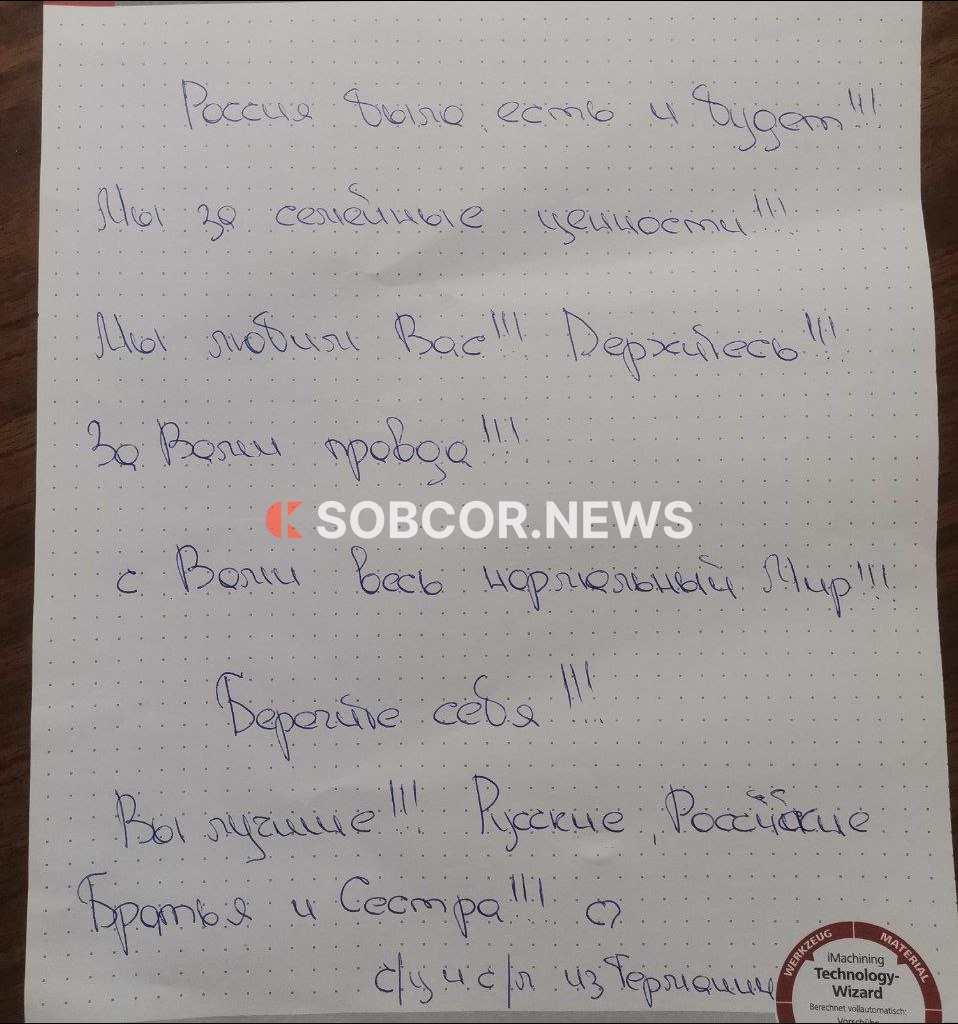 Россия была есть и будет!!!
Мы за семейные ценности!!!
Мы любим Вас!!! Держитесь!!!
За Вами правда!!!
SOBCOR.NEWS
с Вами весь нормальный Мир!!!
Берегите себя!!!
Вы лучшие!!! Русские, Российские
Братья и Сестра!!!
с/у и с/л из Германии
WERKZEUG
MATERIAL
iMachining
Technology-
Wizard
Berechnet vollautomatisch: